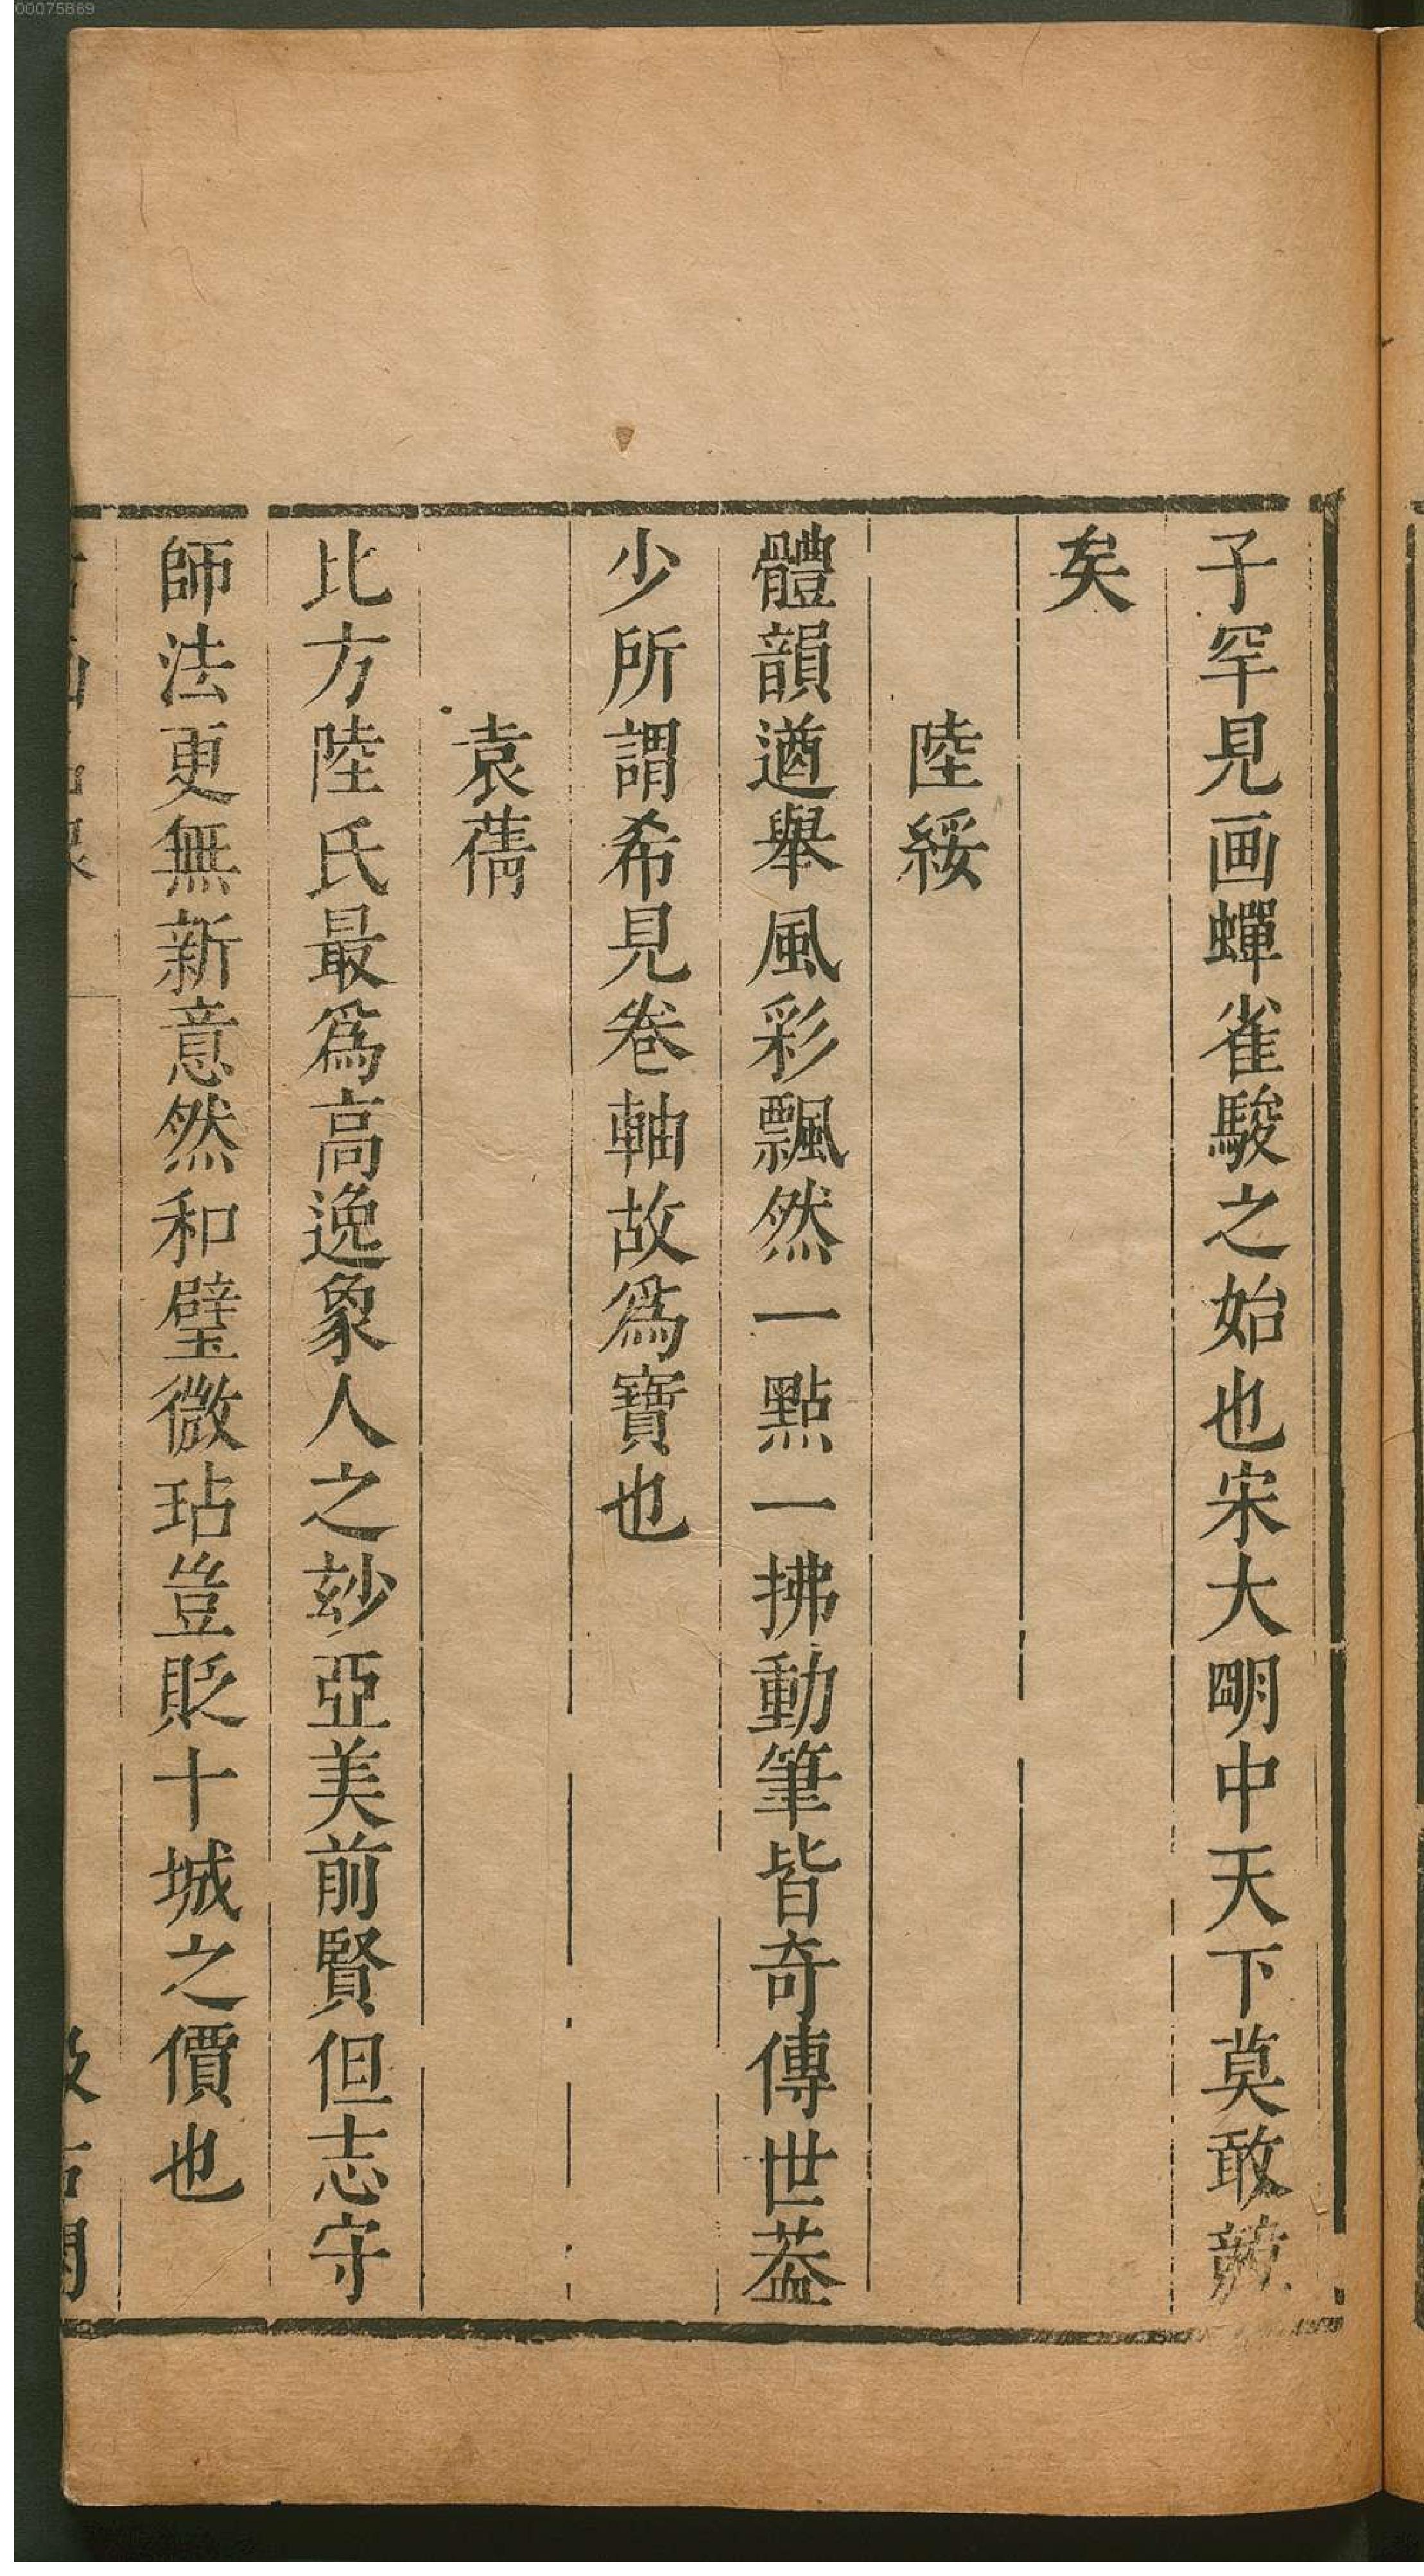 00075869
子罕見画蟬雀駿之始也宋大明中天下莫敢競
矣
陸綏
體韻遒舉風彩飄然一點一拂動筆皆奇傳世葢
少所謂希見卷軸故爲寶也
袁蒨
比方陸氏最爲高逸象人之玅亞美前賢但志守
師法更無新意然和璧微玷豈貶十城之價也